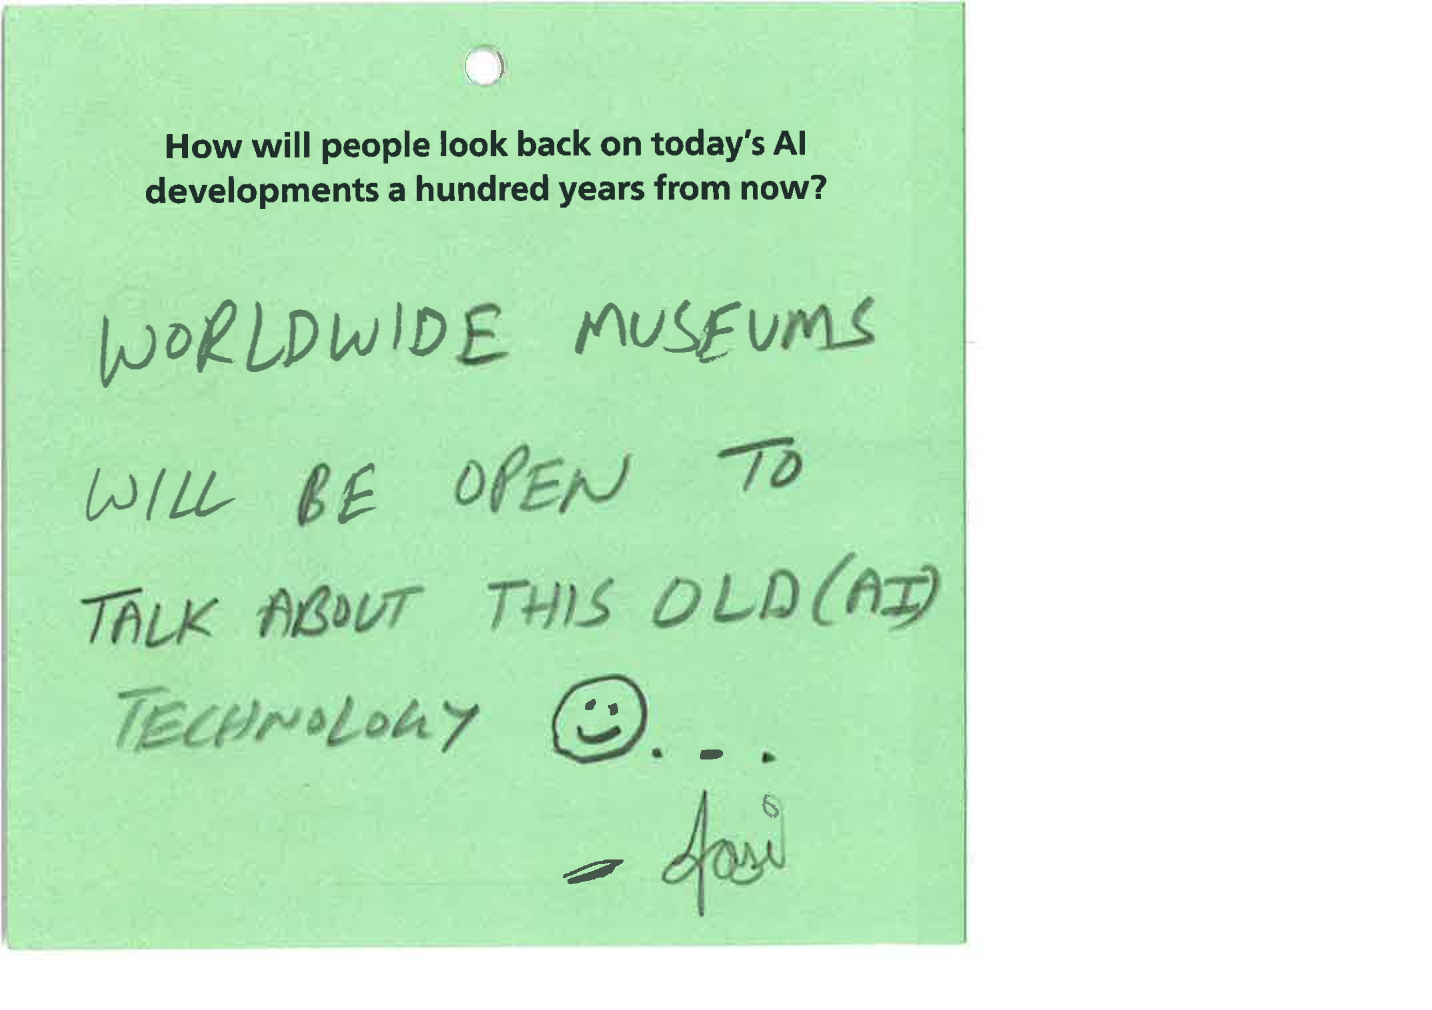 How will people look back on today's AI
developments a hundred years from now?
WORLDWIDE MUSEUMS
WILL BE OPEN TO
TALK ABOUT THIS OLD (AI)
TECHNOLOGY ☺. - .